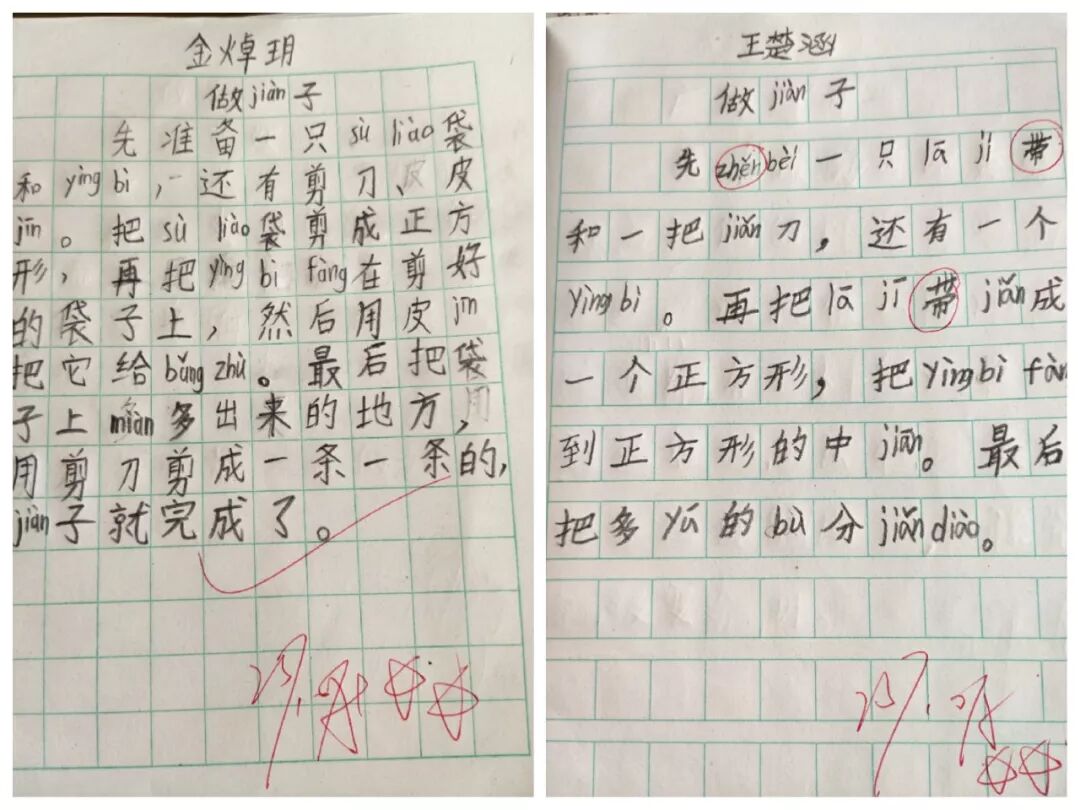 金焯玥
做jiàn子
先准备一只sù liào袋
和yìng bì，还有剪刀、皮
jīn。把sù liào袋剪成正方
形，再把yìng bì fàng在剪好
的袋子上，然后用皮jīn
把它给bǔng zhù。最后把袋
子上miàn多出来的地方，
用剪刀剪成一条一条的，
jiàn子就完成了。
王楚涵
做jiàn子
先zhěn bèi一只lā jī带
和一把jiǎn刀，还有一个
yìng bì。再把lā jī带jiǎn成
一个正方形，把yìng bì fàn
到正方形的中jiān。最后
把多yú的bù分jiǎn diào。